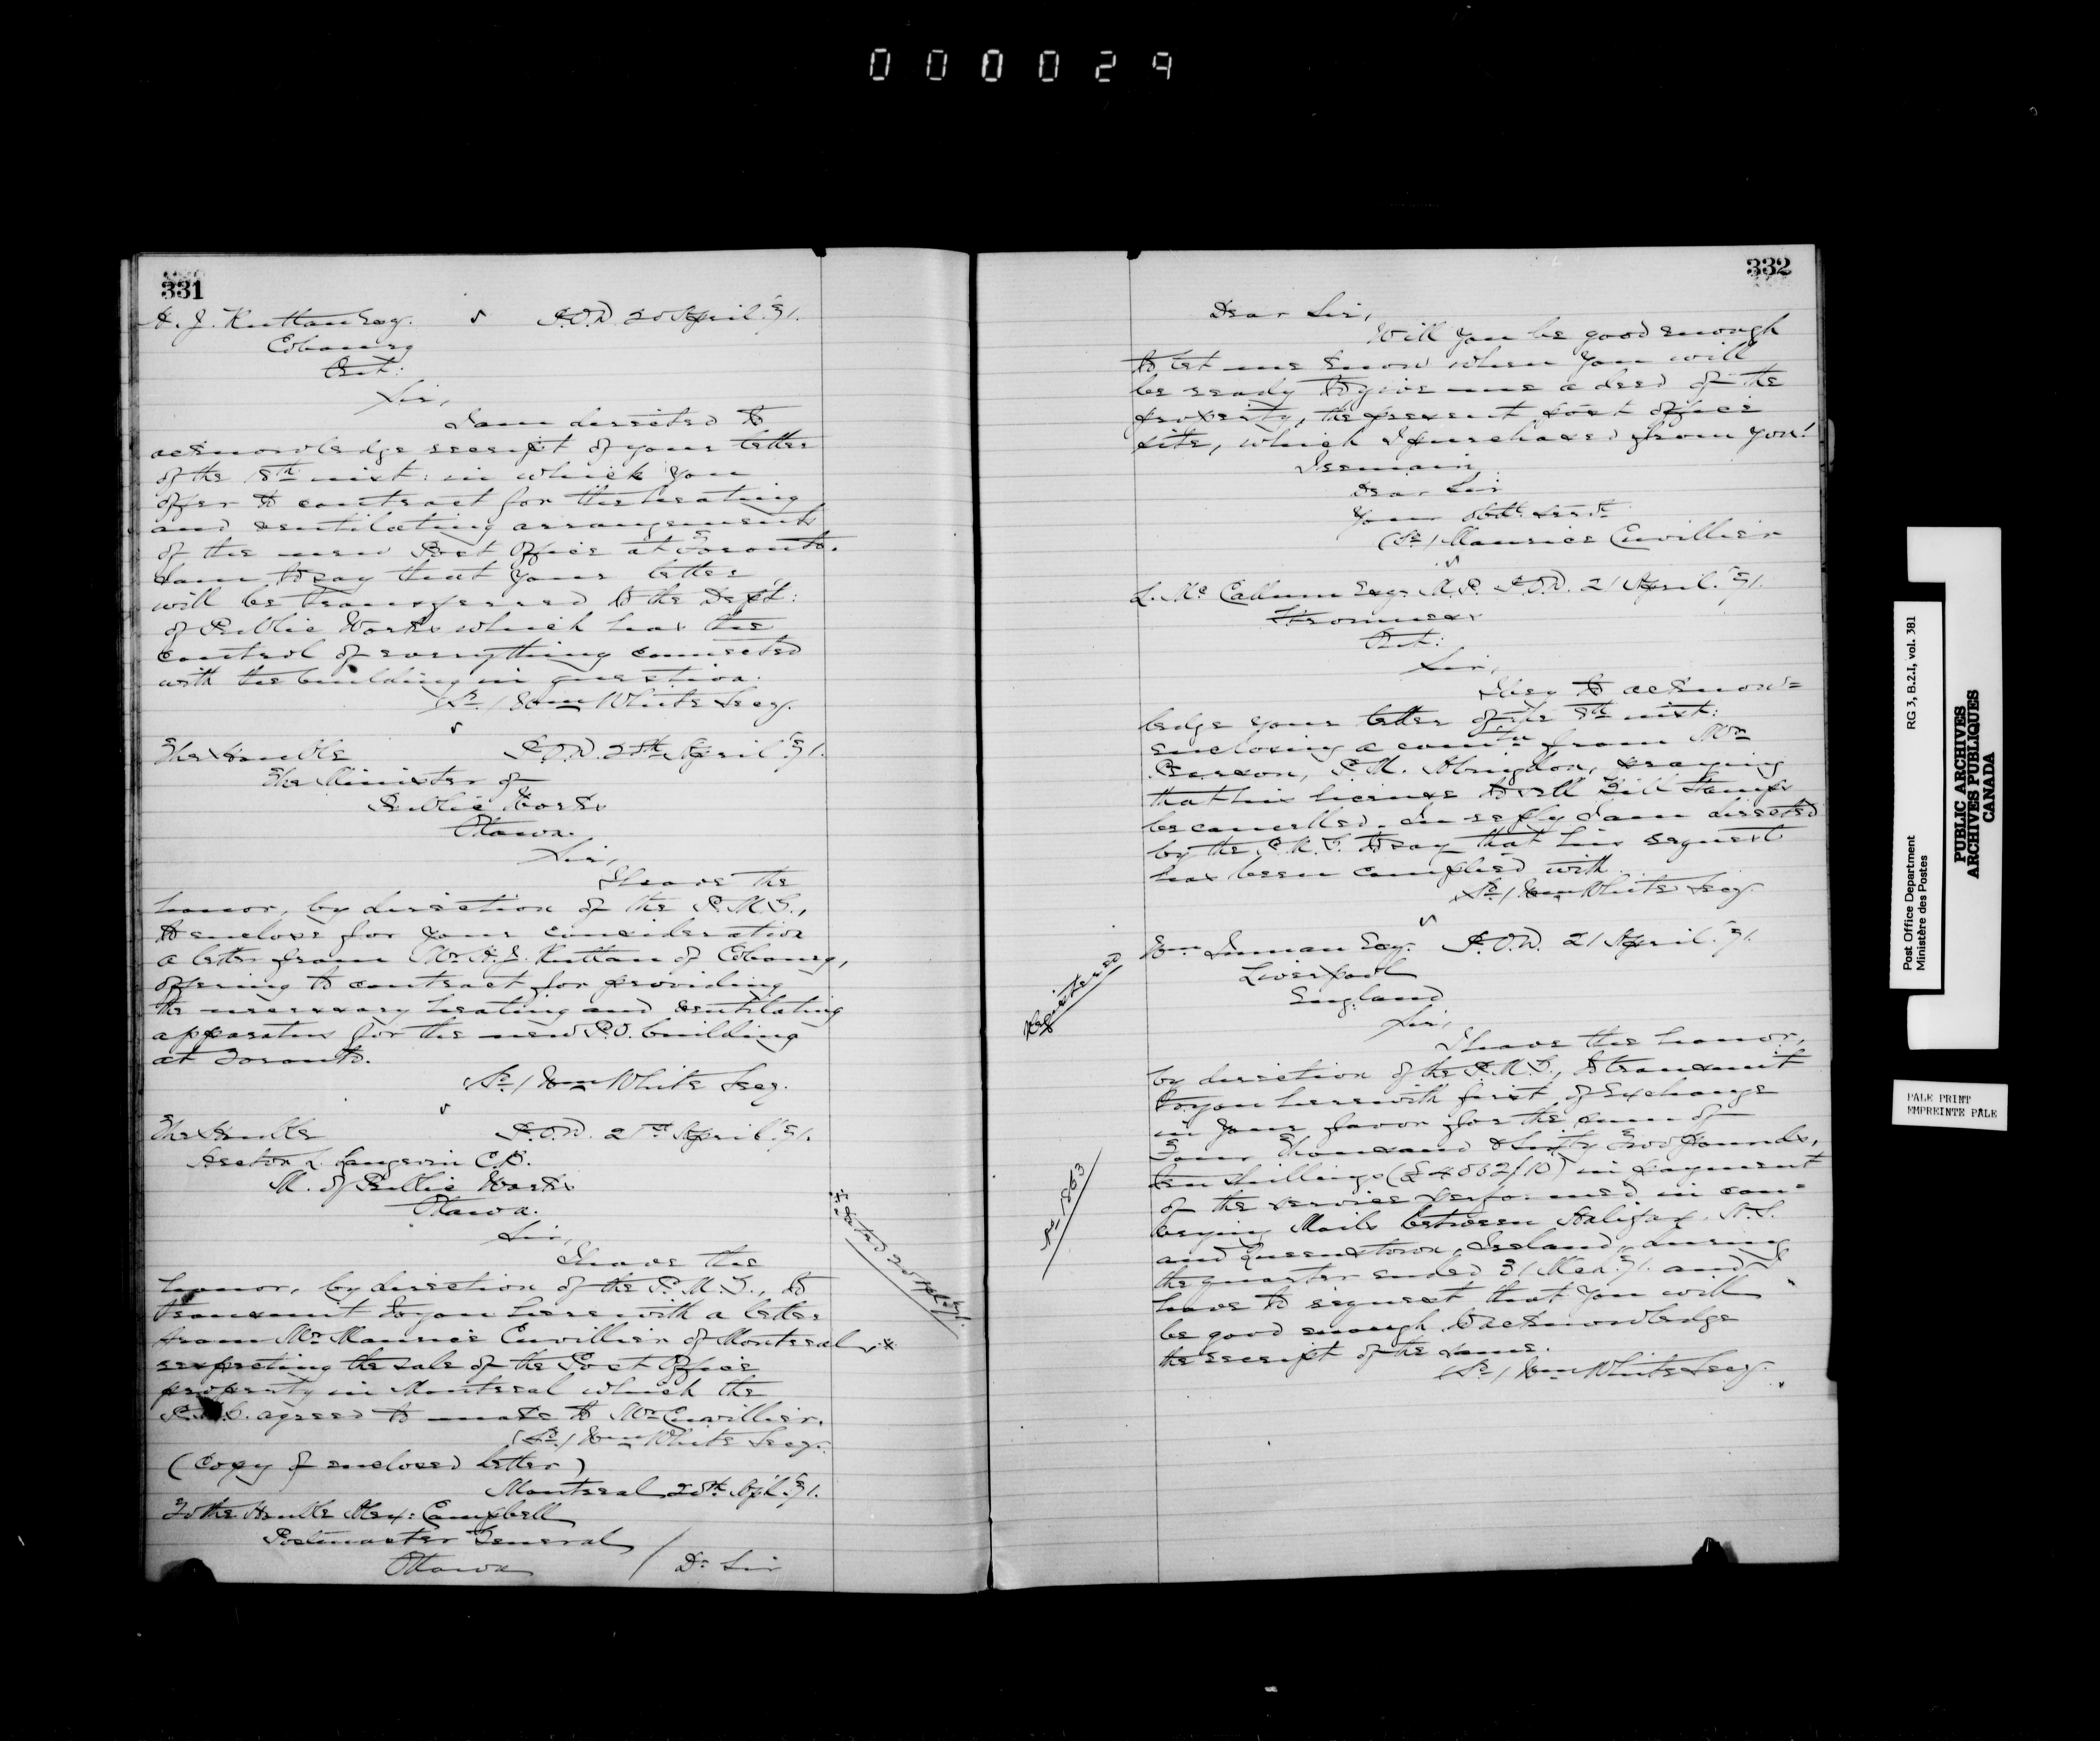 000029
331
H. J. Ruttan Esq. P.O.D. 20 April '71.
Cobourg
Ont:
Sir,
I am directed to
acknowledge receipt of your letter
of the 18th inst: in which you
offer to contract for the heating
and ventilating arrangements
of the new Post Office at Toronto.
I am to say that your letter
will be transferred to the Dept:
of Public Works which has the
control of everything connected
with the building in question.
(Sd.) Wm White Secy.
The Honble P.O.D. 20th April '71.
The Minister of
Public Works
Ottawa.
Sir,
I have the
honor, by direction of the P.M.G.,
to enclose for your consideration
a letter from Mr H. J. Ruttan of Cobourg,
offering to contract for providing
the necessary heating and ventilating
apparatus for the new P.O. building
at Toronto.
(Sd.) Wm White Secy.
The Honble P.O.D. 21st April '71.
Hector L. Langevin C.B.
M. of Public Works
Ottawa.
Sir,
I have the
honor, by direction of the P.M.G., to
transmit to you herewith a letter
from Mr Maurice Cuvillier of Montreal, x
respecting the sale of the Post Office
property in Montreal which the
P.M.G. agreed to make to Mr Cuvillier.
(Sd.) Wm White Secy.
x dated 20 Apl '71.
(Copy of enclosed letter)
Montreal 20th Apl. '71.
To the Honble Alex: Campbell
Postmaster General
Ottawa / Dr Sir
332
Dear Sir,
Will you be good enough
to let me know when you will
be ready to give me a deed of the
property, the present post office
site, which I purchased from you!
I remain
Dear Sir
Your obdt. servt.
(Sd.) Maurice Cuvillier
L. McCallum Esq. M.P. P.O.D. 21 April '71.
Stromness
Ont:
Sir,
I beg to acknow=
ledge your letter of the 8th inst:
enclosing a comn from Mr
Pearson, P.M. Abingdon, praying
that his license to sell Bill Stamps
be cancelled. In reply I am directed
by the P.M.G. to say that his request
has been complied with.
(Sd.) Wm White Secy.
Registered
Wm Inman Esq. P.O.D. 21 April '71.
Liverpool
England
Sir,
I have the honor,
by direction of the P.M.G., to transmit
to you herewith first of Exchange
in your favor for the sum of
Four Thousand & Sixty Two Pounds,
ten shillings (£4062/10) in payment
of the service performed in con=
veying Mails between Halifax, N.S.
and Queenstown, Ireland, during
the quarter ended 31 Mch. '71. and I
have to request that you will
be good enough to acknowledge
the receipt of the same.
(Sd.) Wm White Secy.
No 1863
Post Office Department RG 3, B.2.I, vol. 381
Ministère des Postes
PUBLIC ARCHIVES
ARCHIVES PUBLIQUES
CANADA
PALE PRINT
EMPREINTE PALE